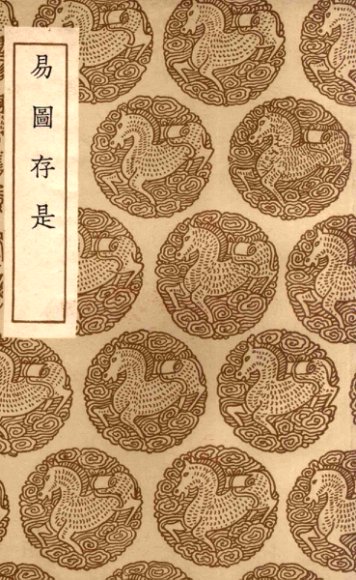 易圖存是